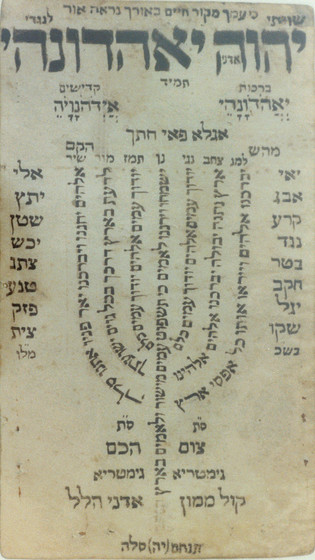 שויתי כי עמך מקור חיים באורך נראה אור לנגדי
יהוה אדני יאהדונהי
תמיד
ברכות קדישים
יאהדונהי אידהנויה
אגלא פאי חתך
מהש הקם
למנ צחב נגי גן תמז מיר שיר
יאי אלי
אבג יתץ
קרע שטן
נגד יכש
בטר צתג
חקב טנע
יגל פזק
שקו צית
בשכ מלו
יברכנו אלהים וייראו אותו כל אפסי ארץ
ארץ נתנה יבולה יברכנו אלהים אלהינו
יודוך עמים אלהים יודוך עמים כלם
ישמחו וירננו לאומים כי תשפוט עמים מישור ולאמים בארץ
יודוך עמים אלהים יודוך עמים כלם
לדעת בארץ דרכך בכל גוים ישועתך
אלהים יחננו ויברכנו יאר פניו אתנו סלה
סת סת
צום הכם
גימטריא גימטריא
קול ממון אדני הלל
תנחם (יה) סלה